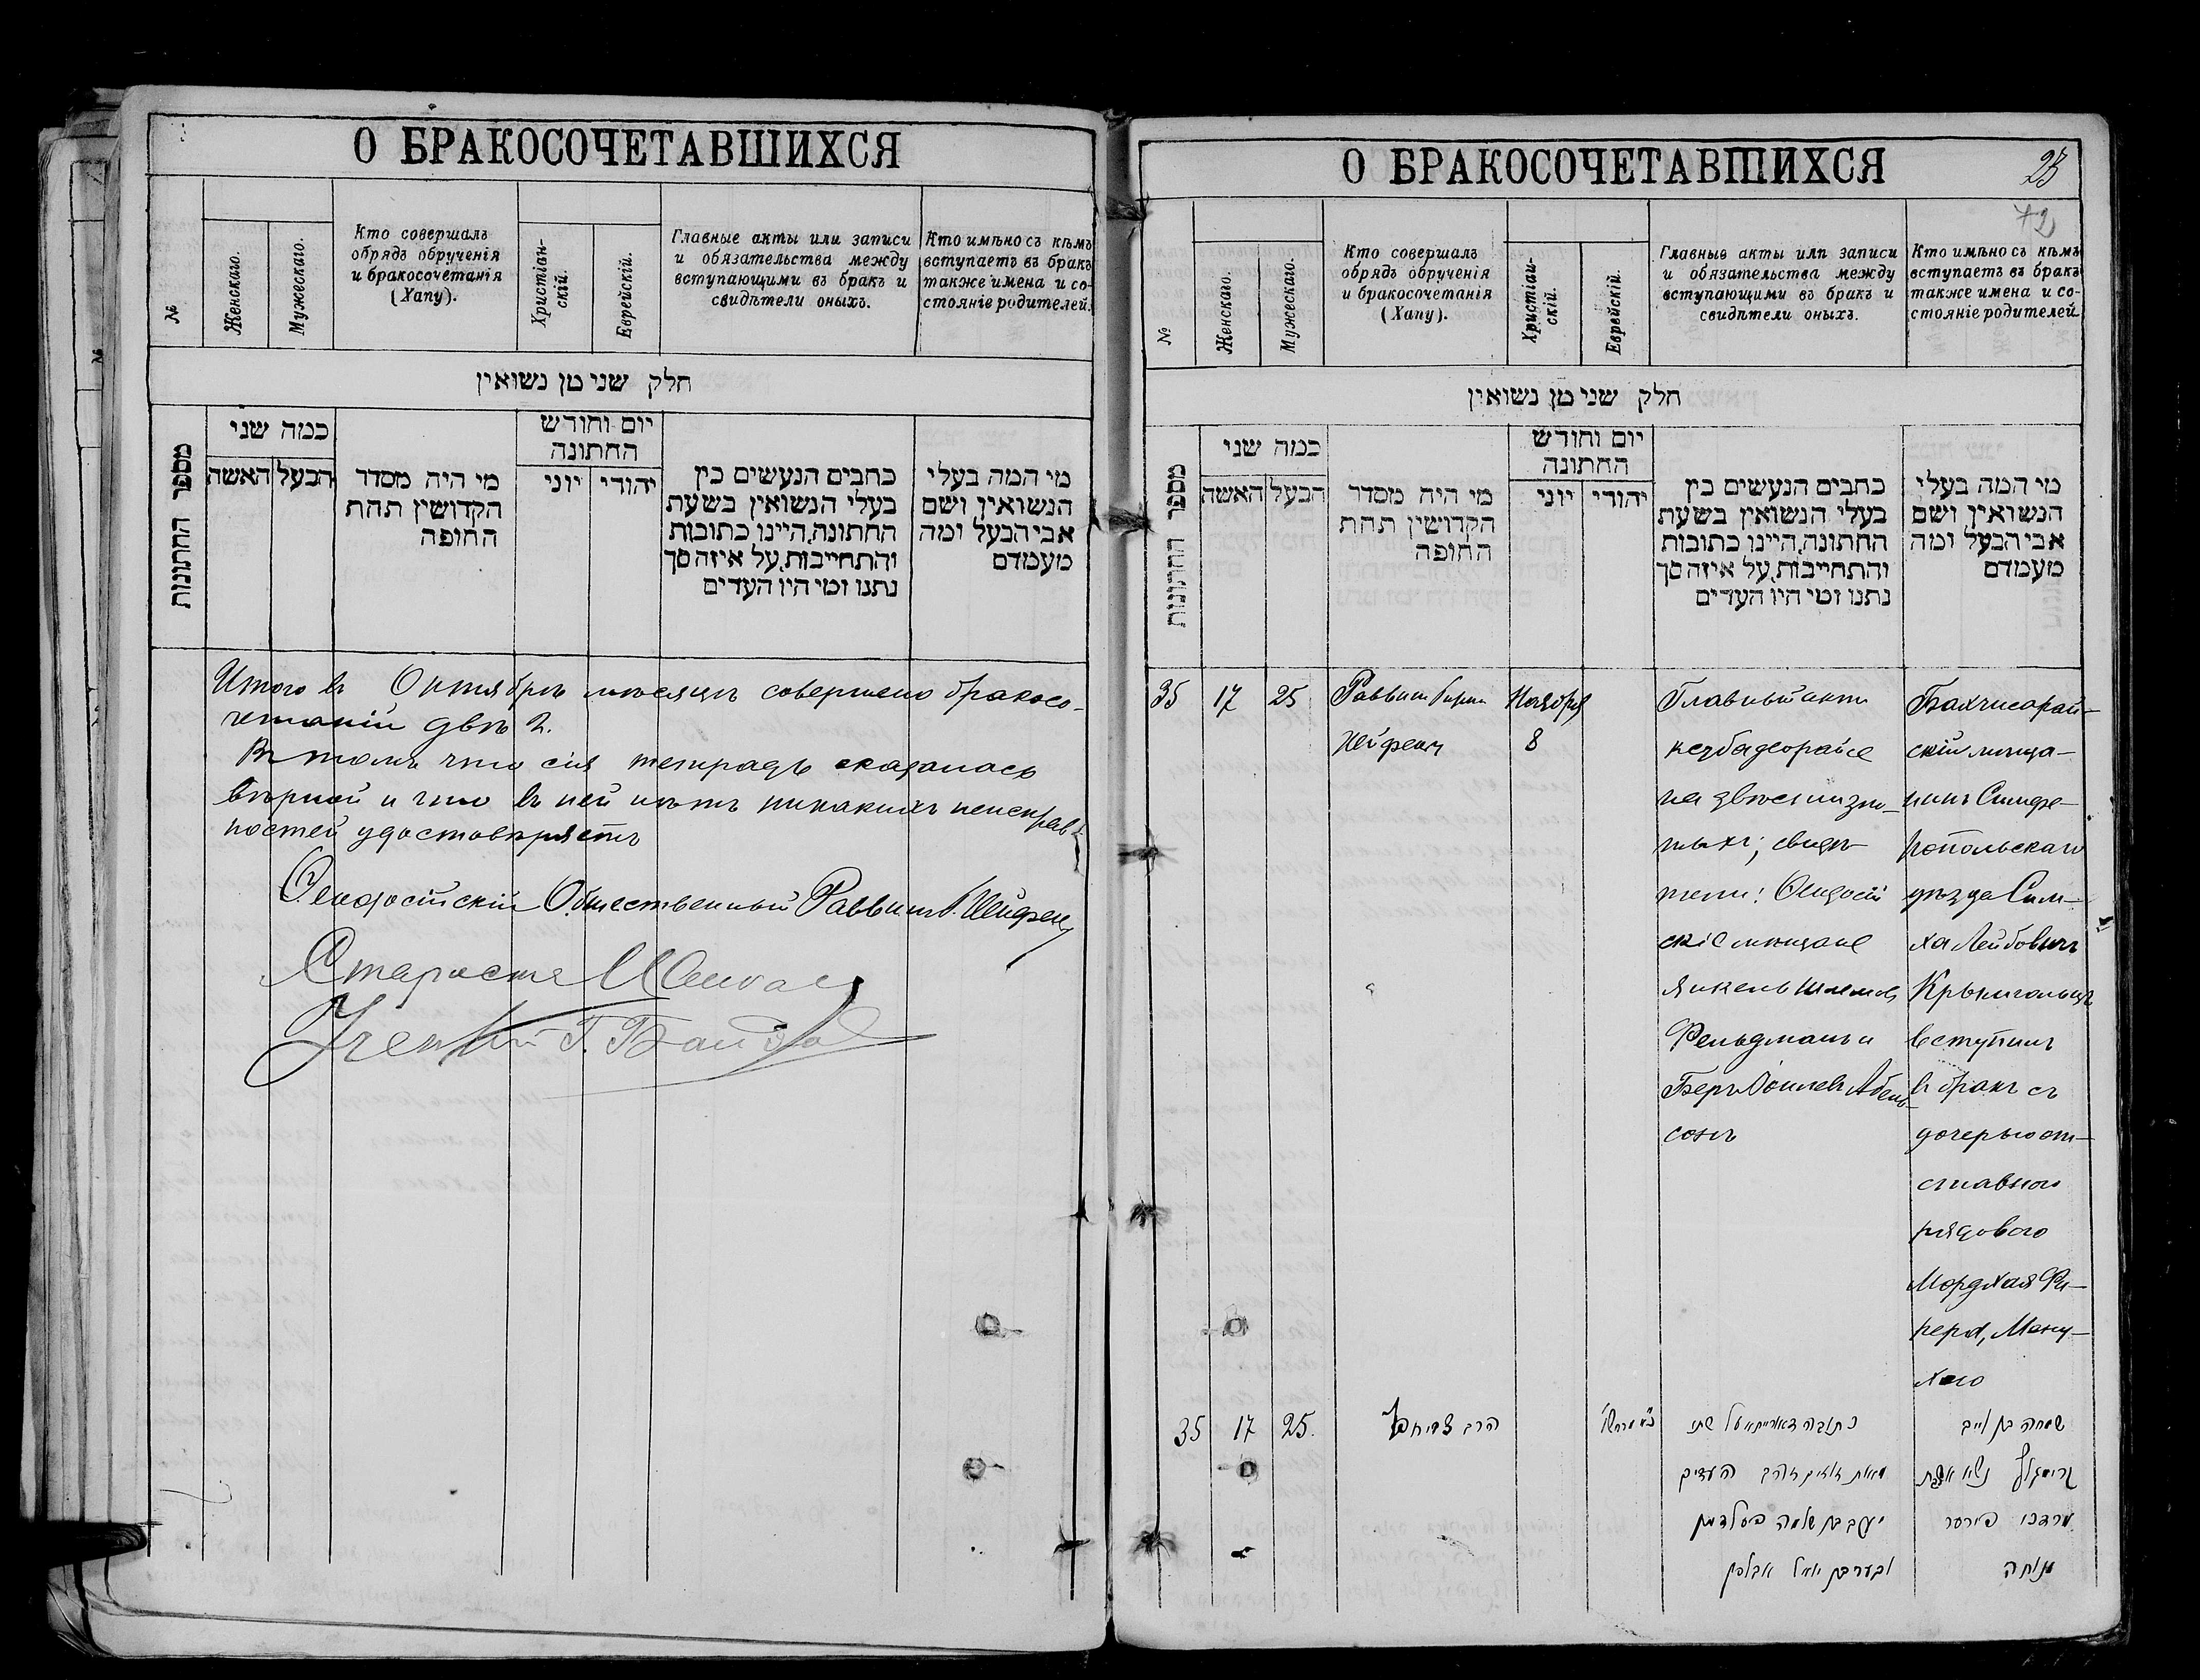 О БРАКОСОЧЕТАВШИХСЯ
№
Женскаго.
Мужескаго.
Кто совершалъ
обрядъ обрученія
и бракосочетанія
(Хапу).
Христіан-
скій.
Еврейскій.
Главные акты или записи
и обязательства между
вступающими въ бракъ и
свидѣтели оныхъ.
Кто имѣно съ кѣмъ
вступаетъ въ бракъ
также имена и со-
стояніе родителей.
חלק שני מן נשואין
מספר החתונות
כמה שני
הבעל
האשה
מי היה מסדר
הקדושין תחת
החופה
יום וחודש
החתונה
יהודי
יוני
כתבים הנעשים בין
בעלי הנשואין בשעת
החתונה, היינו כתובות
והתחייבות, על איזה סך
נתנו ומי היו העדים
מי המה בעלי
הנשואין ושם
אבי הבעל ומה
מעמדם
Итого въ Октябрѣ мѣсяцѣ совершено бракосо-
четаній двѣ 2.
Въ томъ что сія тетрадь оказалась
вѣрной и что въ ней нѣтъ никакихъ неисправ-
ностей удостовѣряетъ
Ѳеодосійскій Общественный Раввинъ
Староста
Ученый Г.
О БРАКОСОЧЕТАВШИХСЯ
23
72
№
Женскаго.
Мужескаго.
Кто совершалъ
обрядъ обрученія
и бракосочетанія
(Хапу).
Христіан-
скій.
Еврейскій.
Главные акты или записи
и обязательства между
вступающими въ бракъ и
свидѣтели оныхъ.
Кто имѣно съ кѣмъ
вступаетъ въ бракъ
также имена и со-
стояніе родителей.
חלק שני מן נשואין
מספר החתונות
כמה שני
הבעל
האשה
מי היה מסדר
הקדושין תחת
החופה
יום וחודש
החתונה
יהודי
יוני
כתבים הנעשים בין
בעלי הנשואין בשעת
החתונה, היינו כתובות
והתחייבות, על איזה סך
נתנו ומי היו העדים
מי המה בעלי
הנשואין ושם
אבי הבעל ומה
מעמדם
35
17
25
Раввинъ
Ноября
8
Главный актъ
на двѣсти зло-
тыхъ; свидѣ-
тели: Ѳеодосій-
скіе мѣщане
Янкель Шлемовъ
Фельдманъ и
Беръ Іоилевъ Абель-
сонъ
Бахчисарай-
скій мѣща-
нинъ Симфе-
ропольскаго
уѣзда Сим-
ха Лейбовичъ
Крымгольцъ
вступилъ
въ бракъ съ
дочерью от-
ставного
рядового
Мордхая Фи-
рера, Мену-
хою
35
17
25.
הרב
כתובה דאורייתא על שתי
מאות זוזים והעדים
יעקב בן שלמה פעלדמן
ובער בן יואל אבלסון
שמחה בן לייב
נשא את בת
מרדכי פירער
מנוחה